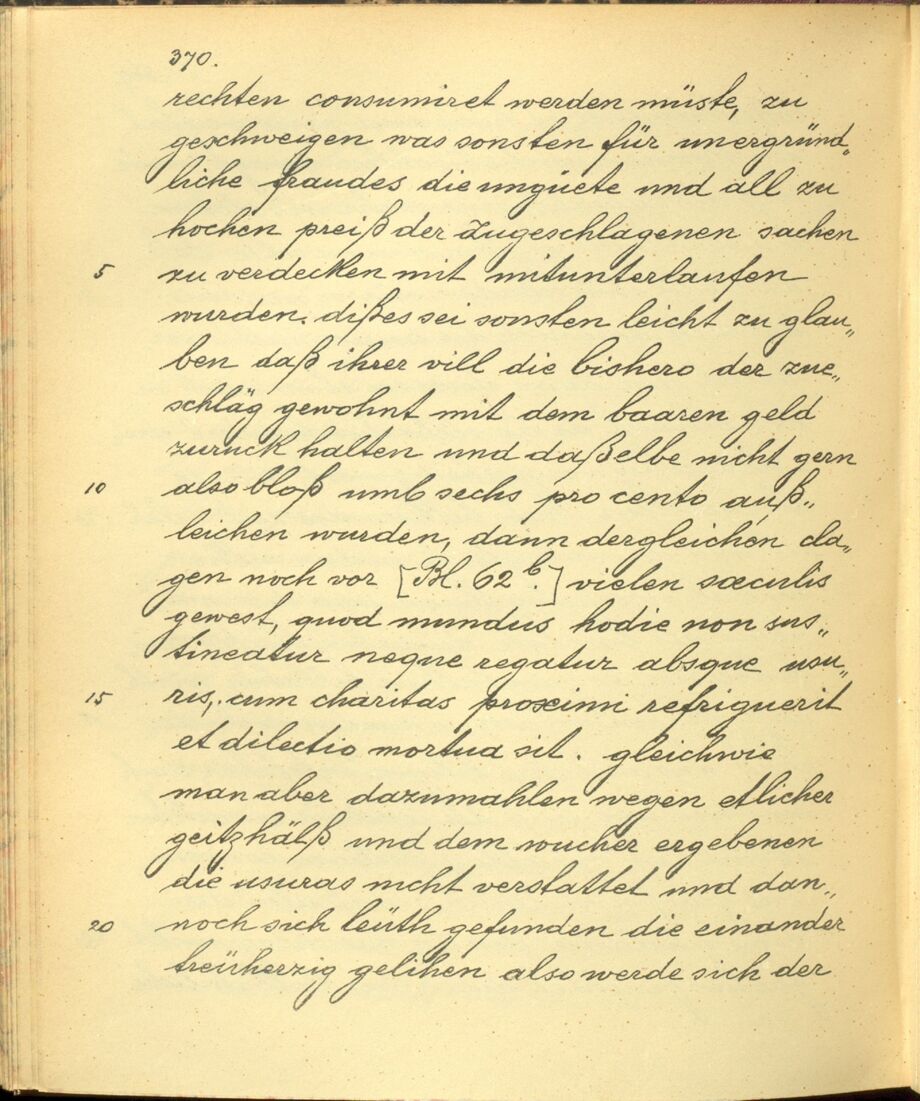 370.
rechten consumiret werden müste, zu
geschweigen was sonsten für unergründ„
liche fraudes die ungüete und all zu
hochen preiß der zugeschlagenen sachen
5 zu verdecken mit mitunterlaufen
wurden. dißes sei sonsten leicht zu glau„
ben daß ihrer vill die bishero der zue„
schläg gewohnt mit dem baaren geld
zuruck halten und daßelbe nicht gern
10 also bloß umb sechs pro cento auß„
leichen wurden, dann dergleichen cla„
gen noch vor [Bl. 62b.] vielen sæculis
gewest, quod mundus hodie non sus„
tineatur neque regatur absque usu„
15 ris, cum charitas proximi refriguerit
et dilectio mortua sit. gleichwie
man aber dazumahlen wegen etlicher
geitzhälß und dem wucher ergebenen
die usuras nicht verstattet und dan„
20 noch sich leüth gefunden die einander
treüherzig gelihen also werde sich der